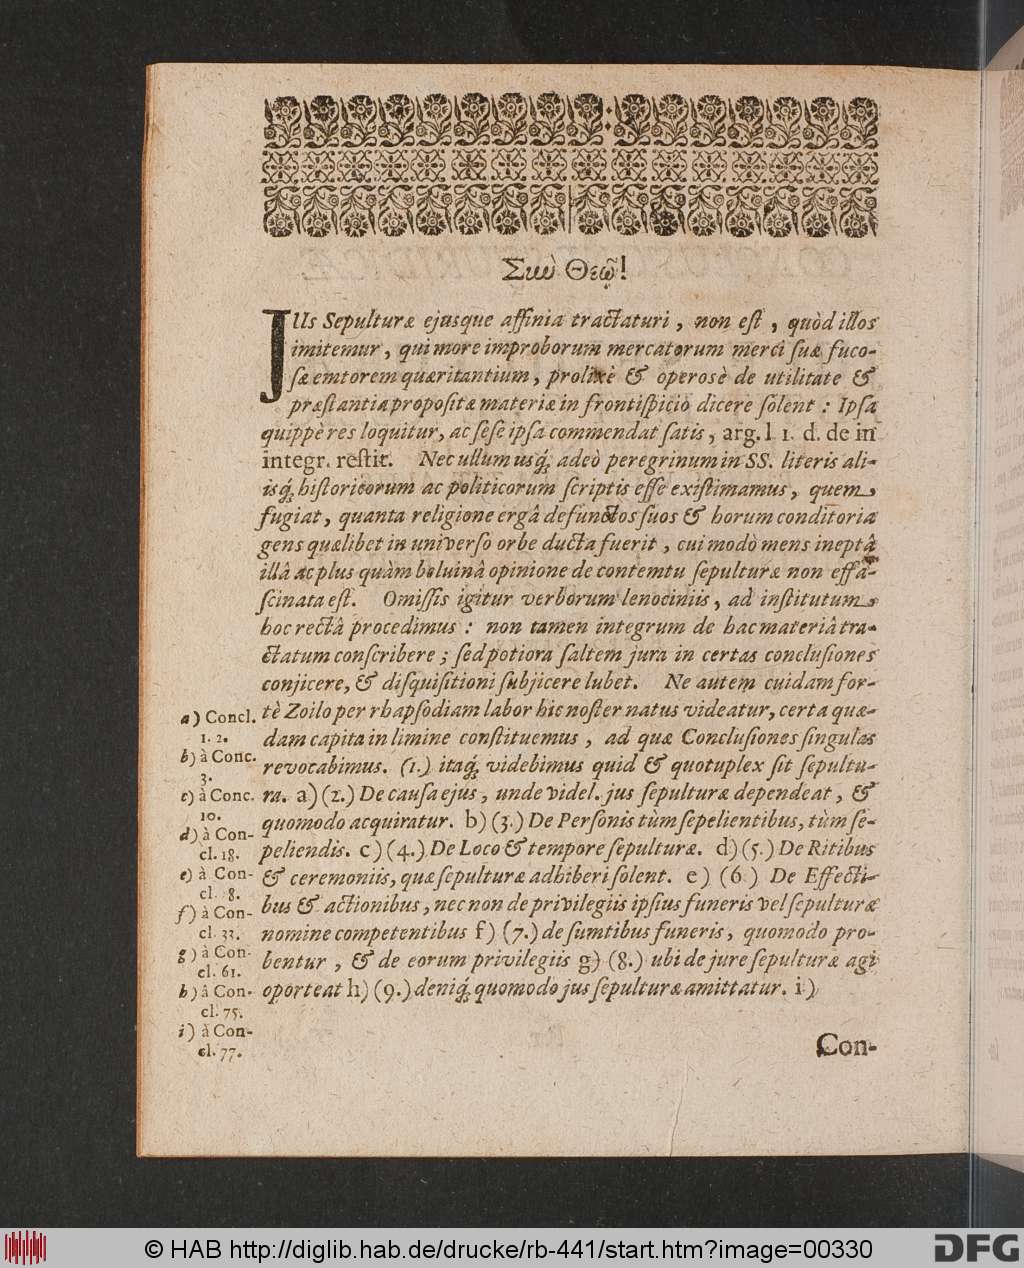 Σιωὺ Θεῷ!
JUs Sepulturæ ejusque affinia tractaturi, non est, quòd illos
imitemur, qui more improborum mercatorum merci suæ fuco-
sæ emtorem quæritantium, prolixè & operosè de utilitate &
præstantia propositæ materiæ in frontispicio dicere solent : Ipsa
quippè res loquitur, ac sese ipsa commendat satis, arg. l 1. d. de in
integr. restit. Nec ullum usq; adeò peregrinum in SS. literis ali-
isq; historicorum ac politicorum scriptis esse existimamus, quem
fugiat, quanta religione ergâ defunctos suos & horum conditoria
gens quælibet in universo orbe ducta fuerit, cui modò mens ineptâ
illâ ac plus quàm beluinâ opinione de contemtu sepulturæ non effa-
scinata est. Omissis igitur verborum lenociniis, ad institutum
hoc rectâ procedimus : non tamen integrum de hac materiâ tra-
ctatum conscribere ; sed potiora saltem jura in certas conclusiones
conjicere, & disquisitioni subjicere lubet. Ne autem cuidam for-
tè Zoilo per rhapsodiam labor hic noster natus videatur, certa quæ-
dam capita in limine constituemus, ad quæ Conclusiones singulas
revocabimus. (1.) itaq; videbimus quid & quotuplex sit sepultu-
ra. a) (2.) De causa ejus, unde videl. jus sepulturæ dependeat, &
quomodo acquiratur. b) (3.) De Personis tùm sepelientibus, tùm se-
peliendis. c) (4.) De Loco & tempore sepulturæ. d) (5.) De Ritibus
& ceremoniis, quæ sepulturæ adhiberi solent. e) (6.) De Effecti-
bus & actionibus, nec non de privilegiis ipsius funeris vel sepulturæ
nomine competentibus f) (7.) de sumtibus funeris, quomodo pro-
bentur, & de eorum privilegiis g) (8.) ubi de jure sepulturæ agi
oporteat h) (9.) deniq; quomodo jus sepulturæ amittatur. i)
a) Concl.
1. 2.
b) à Conc.
3.
c) à Conc.
10.
d) à Con-
cl. 18.
e) à Con-
cl. 8.
f) à Con-
cl. 33.
g) à Con-
cl. 61.
h) â Con-
cl. 75.
i) à Con-
cl. 77.
Con-
© HAB http://diglib.hab.de/drucke/rb-441/start.htm?image=00330
DFG